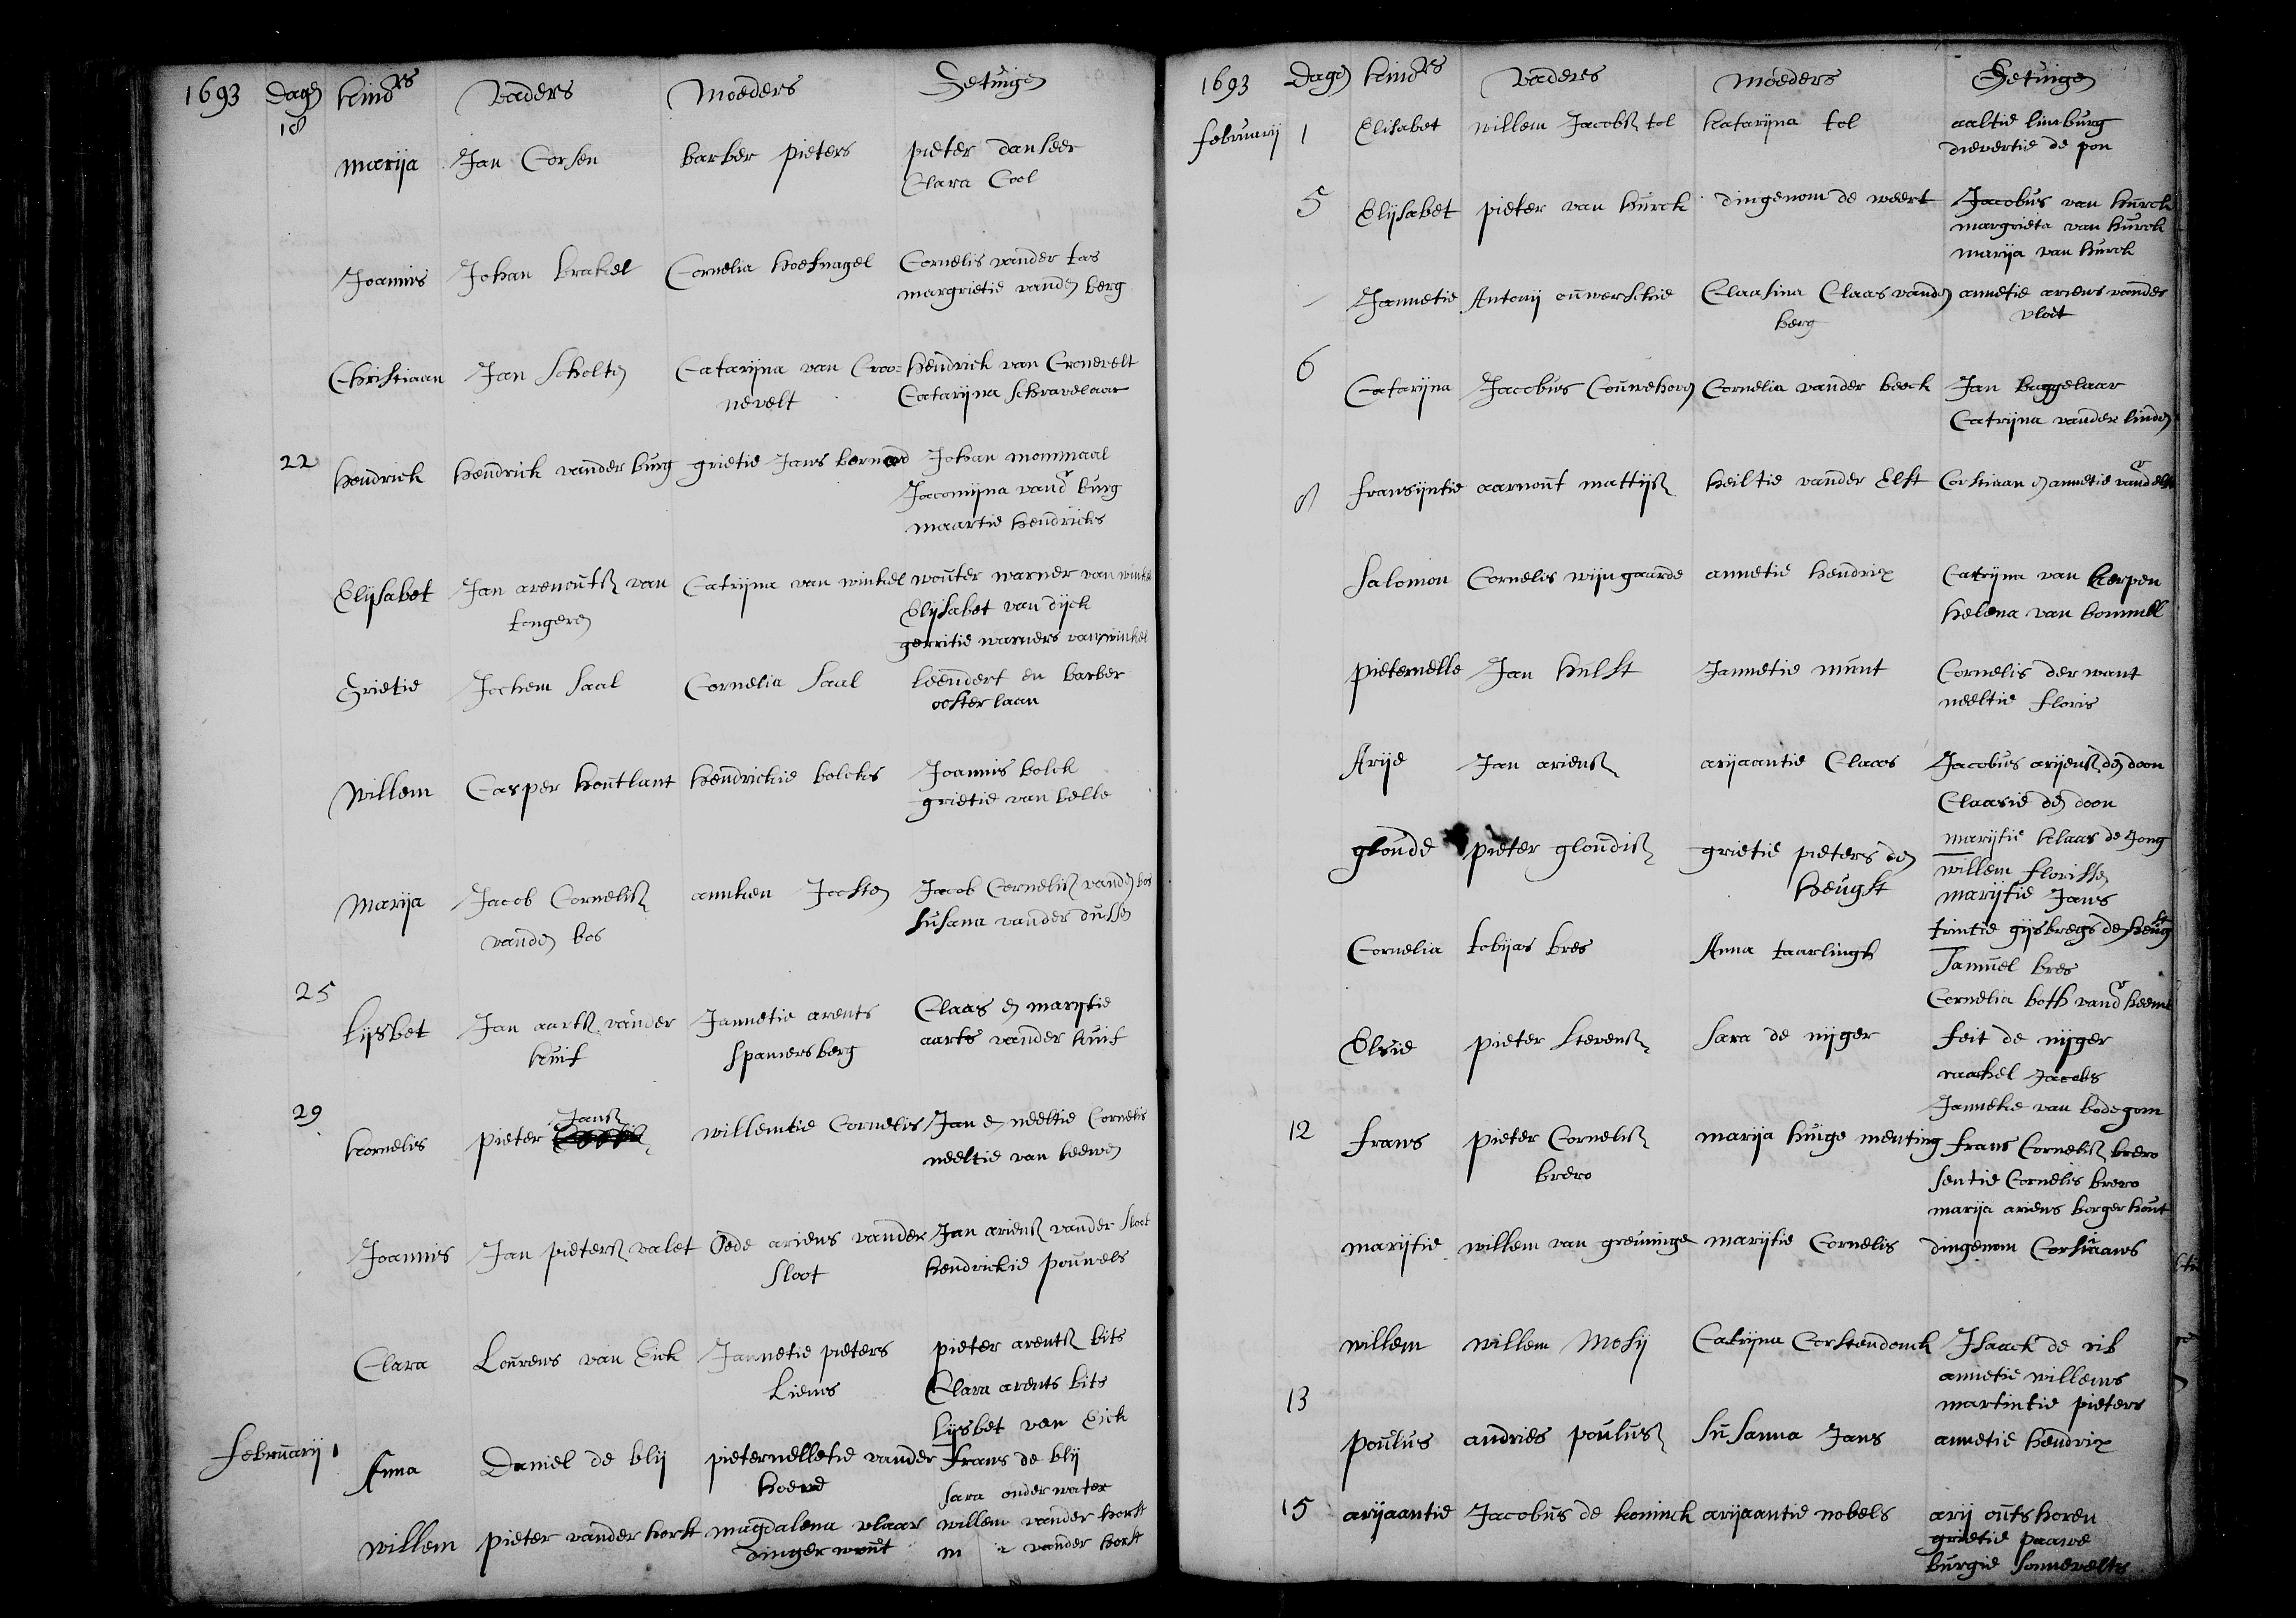 1693 Dagen kind:rs Vaders Moeders Getuigen
18
Marija Jan Corsen barber pieters pieter danseer
Clara Cool
Joannis Johan brakel Cornelia hoefnagel Cornelis vander tas
margrietie vanden berg
Christiaan Jan Scholten Catarijna van Croo= hendrick van Cronevelt
nevelt Catarijna schravelaar
22 hendrick hendrick vander burg grietie Jans bernard Johan mommaal
Jacomijna vandr burg
maartie hendricks
Elijsabet Jan arenouts van Catrijna van winckel wouter warner van winkel
tongeren Elijsabet van dijck
gerritie warners van winkel
Grietie Jochem saal Cornelia saal leendert en barber
oosterlaan
Willem Casper houtlant hendrickie bolckes Joannis bolck
grietie van belle
Marija Jacob Cornelisz anneken Joosten Jacob Cornelisz vanden bos
vanden bos susana vander dussen
25
lijsbet Jan aartsz vander Jannetie arents Claas en marijtie
kuif spamersberg aarts vander kuif
29 Jansz
kornelis pieter willemtie Cornelis Jan en neeltie Cornelis
neeltie van leewen
Joannis Jan pietersz valet Oede ariens vander Jan ariensz vander sloot
sloot hendrickie pouwels
Clara Lourens van Eick Jannetie pieters pieter arentsz bits
Liems Clara arents bits
lijsbet van Eick
februarij 1 Anna Daniel de blij pieternelletie vander frans de blij
hoeve sara onder water
willem pieter vander horst magdalena vlaar willem vander horst
dingerwout vander horst
1693 Dagen kind:rs Vaders Moeders Getuigen
februarij 1 Elisabet willem Jacobsz tol katarijna tol aaltie limburg
dievertie de pon
5 Elijsabet pieter van hurck dingenom de weert Jacobus van hurck
margrieta van hurck
marija van hurck
Jannetie Antonij ouwerschie Claasina Claas vanden annetie ariens vander
berg vloet
6
Catarijna Jacobus Couwehoven Cornelia vander beeck Jan baggelaar
Catrijna vander linden
8 fransijntie aarnout mattijsz heiltie vander Elst Corstiaan en annetie vandr elst
salomon Cornelis wijngaarde annetie hendrix Catrijna van kerpen
helena van bommel
pieternelle Jan hulst Jannetie munt Cornelis der want
neeltie floris
Arije Jan ariensz arijaantie Claas Jacobus arijensz den doon
Claasie den doon
marijtie klaas de Jong
gloude pieter gloudisz grietie pieters den willem florissen
heugst marijtie Jans
trintie gijsbregs den heugst
Cornelia tobijas bres Anna taarlingh Samuel bres
Cornelia both vandr heem
Elsie pieter stevensz sara de nijger feit de nijger
raachel Jacobs
Janneke van bodegom
12 frans pieter Cornelisz marija huige menting frans Cornelisz brero
brero sentie Cornelis brero
marija ariens borgerhout
marijtie willem van greuninge marijtie Cornelis dingenom Corstiaans
willem willem Mosij Catrijna Corstendonck Isaack de rib
annetie willems
13 martintie pieters
poulus andries poulusz susanna Jans annetie hendrix
15 arijaantie Jacobus de koninck arijaantie nobels arij outshoren
grietie paawe
burgie sonnevelts